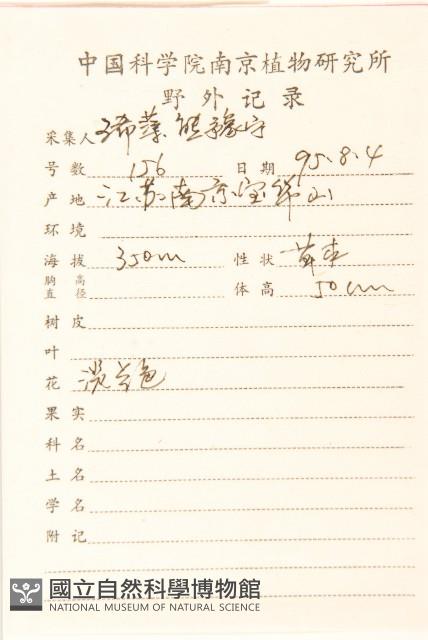 中国科学院南京植物研究所
野外记录
采集人 熊豫宁
号数 156 日期 95.8.4
产地 江苏南京宝华山
环境
海拔 350m 性状 草本
胸高直径 体高 50cm
树皮
叶
花 淡兰色
果实
科名
土名
学名
附记
國立自然科學博物館
NATIONAL MUSEUM OF NATURAL SCIENCE